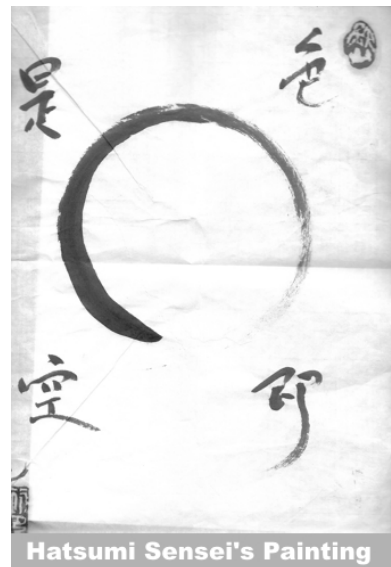 色即
是空
Hatsumi Sensei's Painting